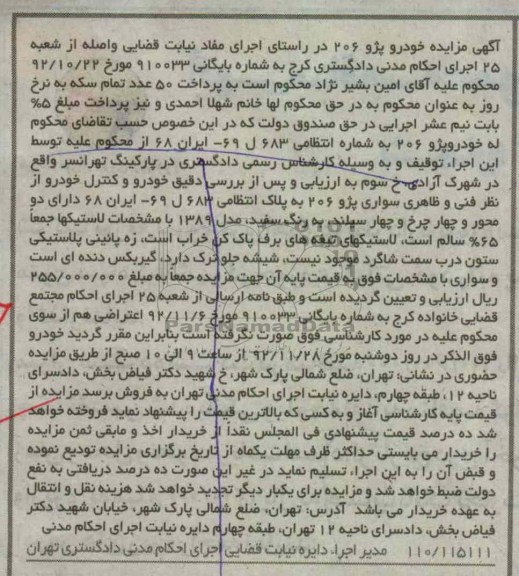 آگهی مزایده خودرو پژو ۲۰۶ در راستای اجرای مفاد نیابت قضایی واصله از شعبه
۲۵ اجرای احکام مدنی دادگستری کرج به شماره بایگانی ۹۱۰۰۳۳ مورخ ۹۲/۱۰/۲۲
محکوم علیه آقای امین بشیر نژاد محکوم است به پرداخت ۵۰ عدد تمام سکه به نرخ
روز به عنوان محکوم به در حق محکوم لها خانم شهلا احمدی و نیز پرداخت مبلغ ۵%
بابت نیم عشر اجرایی در حق صندوق دولت که در این خصوص حسب تقاضای محکوم
له خودروپژو ۲۰۶ به شماره انتظامی ۶۸۳ ل ۶۹- ایران ۶۸ از محکوم علیه توسط
این اجرا، توقیف و به وسیله کارشناس رسمی دادگستری در پارکینگ تهرانسر واقع
در شهرک آزادی خ سوم به ارزیابی و پس از بررسی دقیق خودرو و کنترل خودرو از
نظر فنی و ظاهری سواری پژو ۲۰۶ به پلاک انتظامی ۶۸۳ ل ۶۹- ایران ۶۸ دارای دو
محور و چهار چرخ و چهار سیلند، به رنگ سفید، مدل ۱۳۸۹ با مشخصات لاستیکها جمعا
۶۵% سالم است، لاستیکهای تیغه های برف پاک کن خراب است، زه پائینی پلاستیکی
ستون درب سمت شاگرد موجود نیست، شیشه جلو ترک دارد، گیربکس دنده ای است
و سواری با مشخصات فوق به قیمت پایه آن جهت مزایده جمعا به مبلغ ۲۵۵/۰۰۰/۰۰۰
ریال ارزیابی و تعیین گردیده است و طبق نامه ارسالی از شعبه ۲۵ اجرای احکام مجتمع
قضایی خانواده کرج به شماره بایگانی ۹۱۰۰۳۳ مورخ ۹۲/۱۱/۶ اعتراضی هم از سوی
محکوم علیه در مورد کارشناسی فوق صورت نگرفته است بنابراین مقرر گردید خودرو
فوق الذکر در روز دوشنبه مورخ ۹۲/۱۱/۲۸ از ساعت ۹ الی ۱۰ صبح از طریق مزایده
حضوری در نشانی: تهران، ضلع شمالی پارک شهر، خ شهید دکتر فیاض بخش، دادسرای
ناحیه ۱۲، طبقه چهارم، دایره نیابت اجرای احکام مدنی تهران به فروش برسد مزایده از
قیمت پایه کارشناسی آغاز و به کسی که بالاترین قیمت را پیشنهاد نماید فروخته خواهد
شد ده درصد قیمت پیشنهادی فی المجلس نقدا از خریدار اخذ و مابقی ثمن مزایده
را خریدار می بایستی حداکثر ظرف مهلت یکماه از تاریخ برگزاری مزایده تودیع نموده
و قبض آن را به این اجرا، تسلیم نماید در غیر این صورت ده درصد دریافتی به نفع
دولت ضبط خواهد شد و مزایده برای یکبار دیگر تجدید خواهد شد هزینه نقل و انتقال
به عهده خریدار می باشد آدرس: تهران، ضلع شمالی پارک شهر، خیابان شهید دکتر
فیاض بخش، دادسرای ناحیه ۱۲ تهران، طبقه چهارم دایره نیابت اجرای احکام مدنی
۱۱۰/۱۱۵۱۱۱ مدیر اجرا، دایره نیابت قضایی اجرای احکام مدنی دادگستری تهران
ParsNamadData